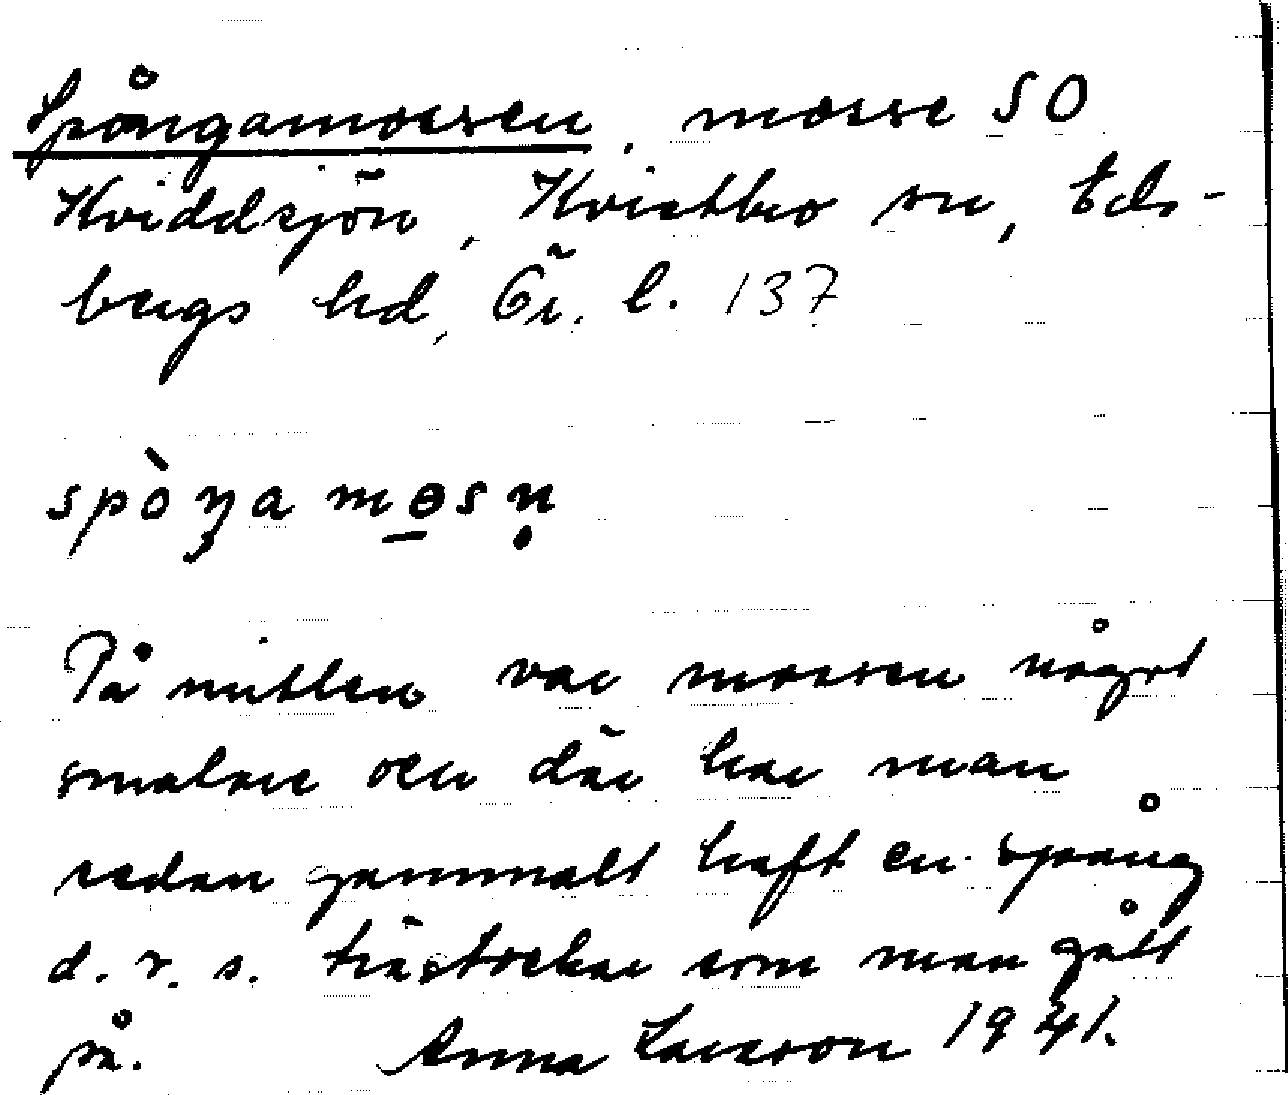 Spångamossen, mosse SO
Kviddsjön, Kvistbro sn, Eds-
bergs hd, Ör. l. 137
spòŋa mɵsn̥
På mitten var mossen något
smalare och där har man
sedan gammalt haft en spång
d. v. s. trästockar som man gått
på. Anna Larsson 1941.